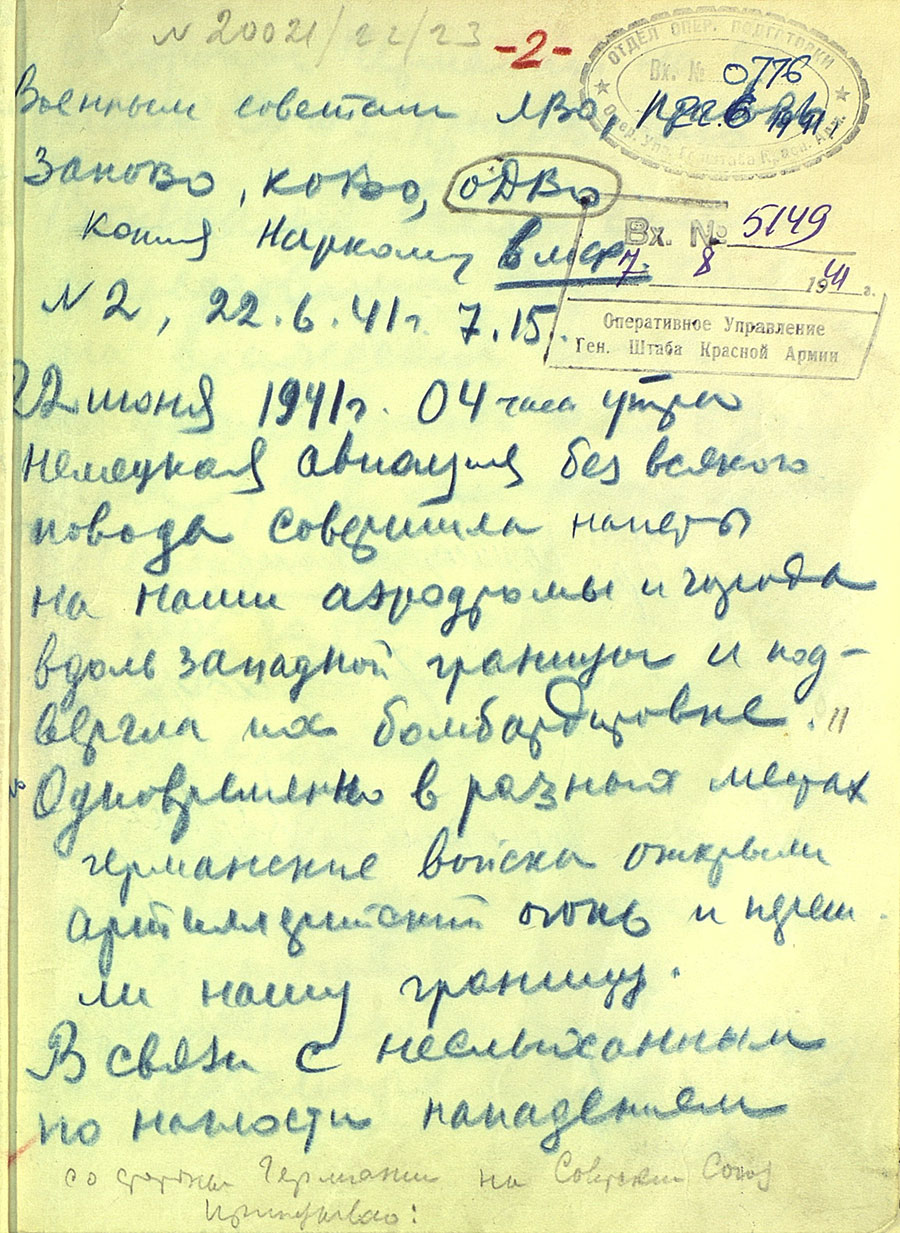 № 20021/22/23 -2-
ОТДЕЛ ОПЕР. ПОДГОТОВКИ
Вх. № 0776
22.6 1941 г.
Опер. Упр. Генштаба Красн. Арм.
Военным советам ЛВО, ПрибОВО,
ЗапОВО, КОВО, ОДВО
копия Наркому ВМФ.
Вх. № 5149
7. 8 1941 г.
Оперативное Управление
Ген. Штаба Красной Армии
№ 2, 22.6.41г. 7.15.
22 июня 1941г. 04 часа утра
немецкая авиация без всякого
повода совершила налеты
на наши аэродромы и города
вдоль западной границы и под-
вергла их бомбардировке.
Одновременно в разных местах
германские войска открыли
артиллерийский огонь и переш
ли нашу границу.
В связи с неслыханным
по наглости нападением
со стороны Германии на Советский Союз
приказываю: